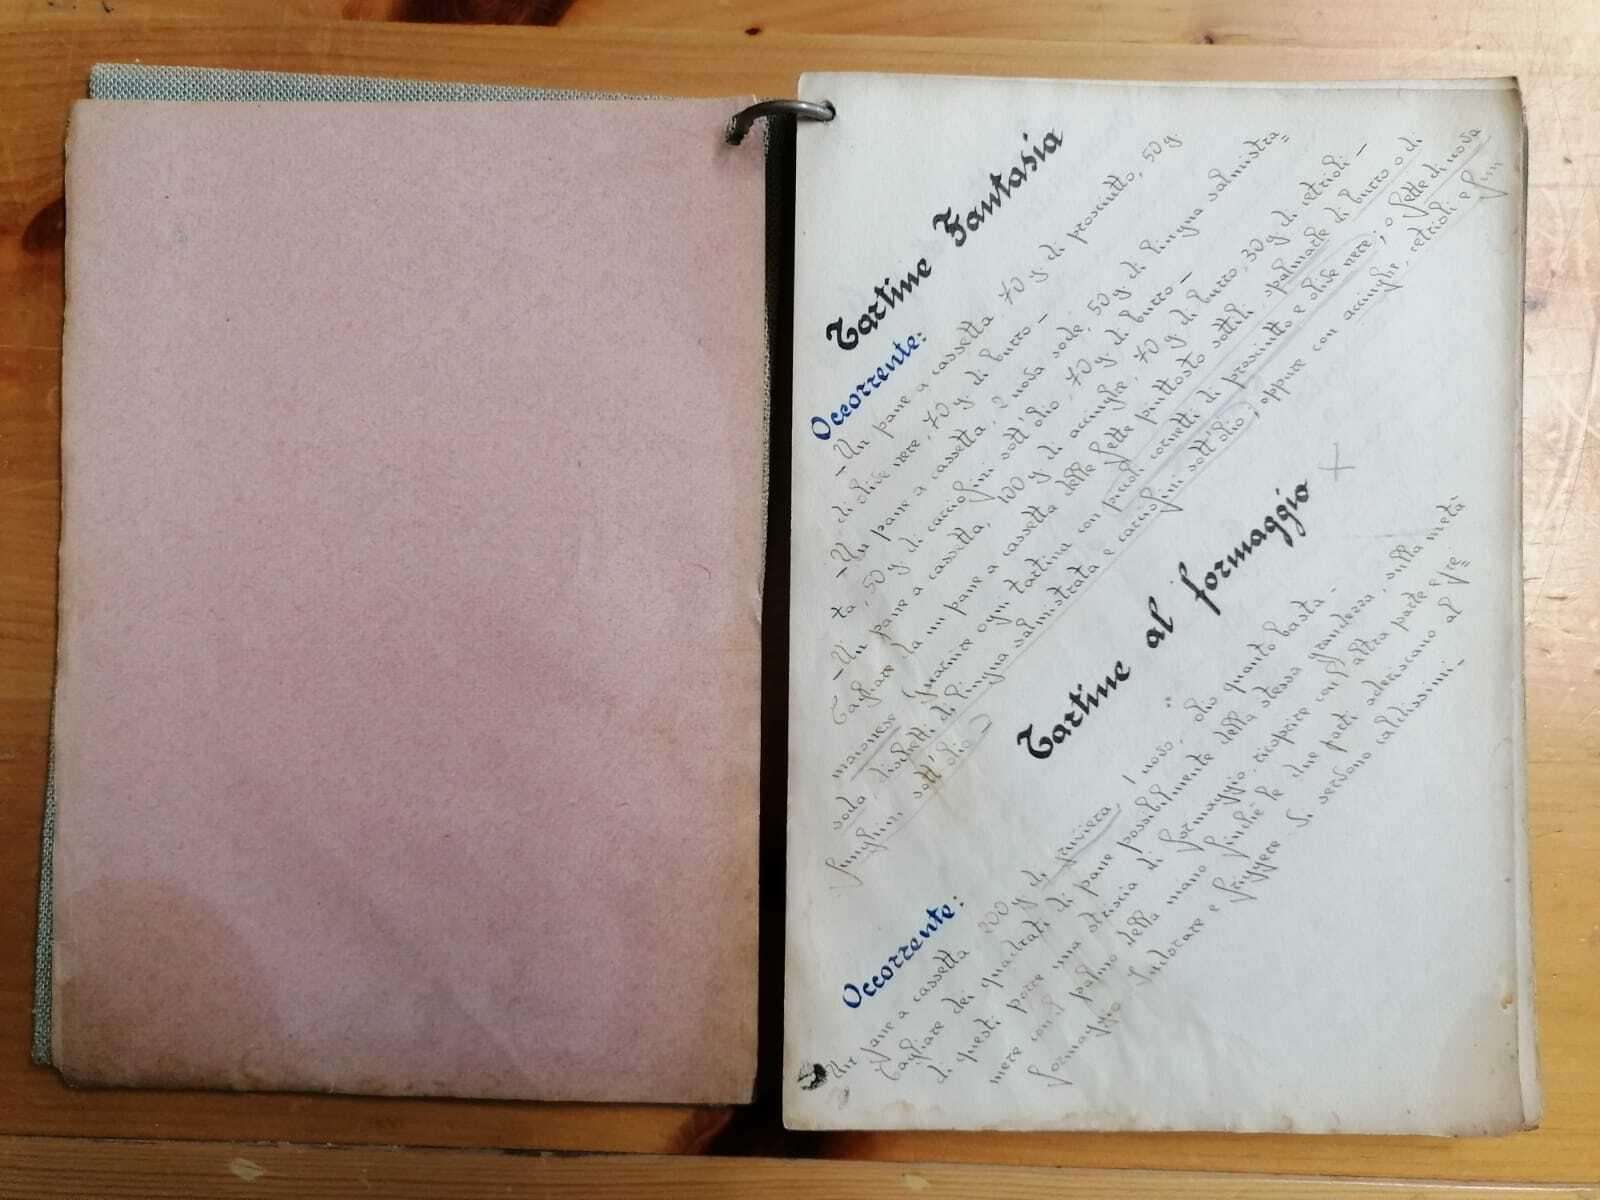 Tartine Fantasia
Occorrente:
- Un pane a cassetta, 70 g. di prosciutto, 50 g.
di olive nere, 70 g. di burro -
- Un pane a cassetta, 2 uova sode, 50 g. di lingua salmistra=
ta, 50 g. di carciofini sott'olio, 70 g. di burro -
- Un pane a cassetta, 100 g. di acciughe, 70 g. di burro, 30 g. di cetrioli -
Tagliare da un pane a cassetta delle fette piuttosto sottili, spalmarle di burro o di
maionese. Guarnire ogni tartina con piccoli cornetti di prosciutto e olive nere; o fette di uova
sode, dischetti di lingua salmistrata e carciofini sott'olio; oppure con acciughe, cetrioli e fun
funghini sott'olio -
Tartine al formaggio X
Occorrente:
Un pane a cassetta 200 g. di gruviera, 1 uovo, olio quanto basta -
Tagliare dei quadrati di pane possibilmente della stessa grandezza, sulla metà
di questi porre una striscia di formaggio, ricoprire con l'altra parte e pre=
mere con il palmo della mano finchè le due parti aderiscano al
formaggio. Indorare e friggere. Si servono caldissimi -